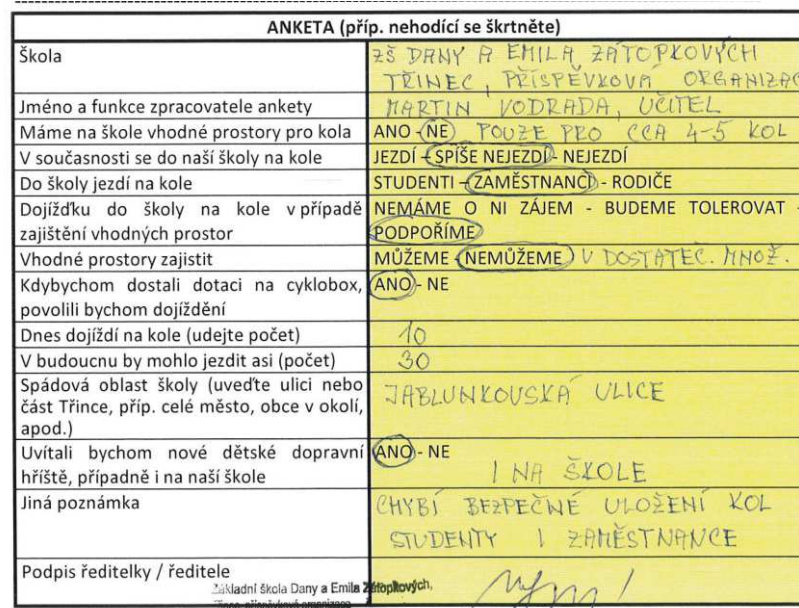 ANKETA (příp. nehodící se škrtněte)
Škola
ZŠ DANY A EMILA ZÁTOPKOVÝCH
TŘINEC, PŘÍSPĚVKOVÁ ORGANIZAC
Jméno a funkce zpracovatele ankety
MARTIN VODRADA, UČITEL
Máme na škole vhodné prostory pro kola
ANO - NE POUZE PRO CCA 4-5 KOL
V současnosti se do naší školy na kole
JEZDÍ - SPÍŠE NEJEZDÍ - NEJEZDÍ
Do školy jezdí na kole
STUDENTI - ZAMĚSTNANCI - RODIČE
Dojížďku do školy na kole v případě
zajištění vhodných prostor
NEMÁME O NI ZÁJEM - BUDEME TOLEROVAT -
PODPOŘÍME
Vhodné prostory zajistit
MŮŽEME - NEMŮŽEME V DOSTATEČ. MNOŽ.
Kdybychom dostali dotaci na cyklobox,
povolili bychom dojíždění
ANO - NE
Dnes dojíždí na kole (udejte počet)
10
V budoucnu by mohlo jezdit asi (počet)
30
Spádová oblast školy (uveďte ulici nebo
část Třince, příp. celé město, obce v okolí,
apod.)
JABLUNKOVSKÁ ULICE
Uvítali bychom nové dětské dopravní
hřiště, případně i na naší škole
ANO - NE
I NA ŠKOLE
Jiná poznámka
CHYBÍ BEZPEČNÉ ULOŽENÍ KOL
STUDENTY I ZAMĚSTNANCE
Podpis ředitelky / ředitele
Základní škola Dany a Emila Zátopkových,